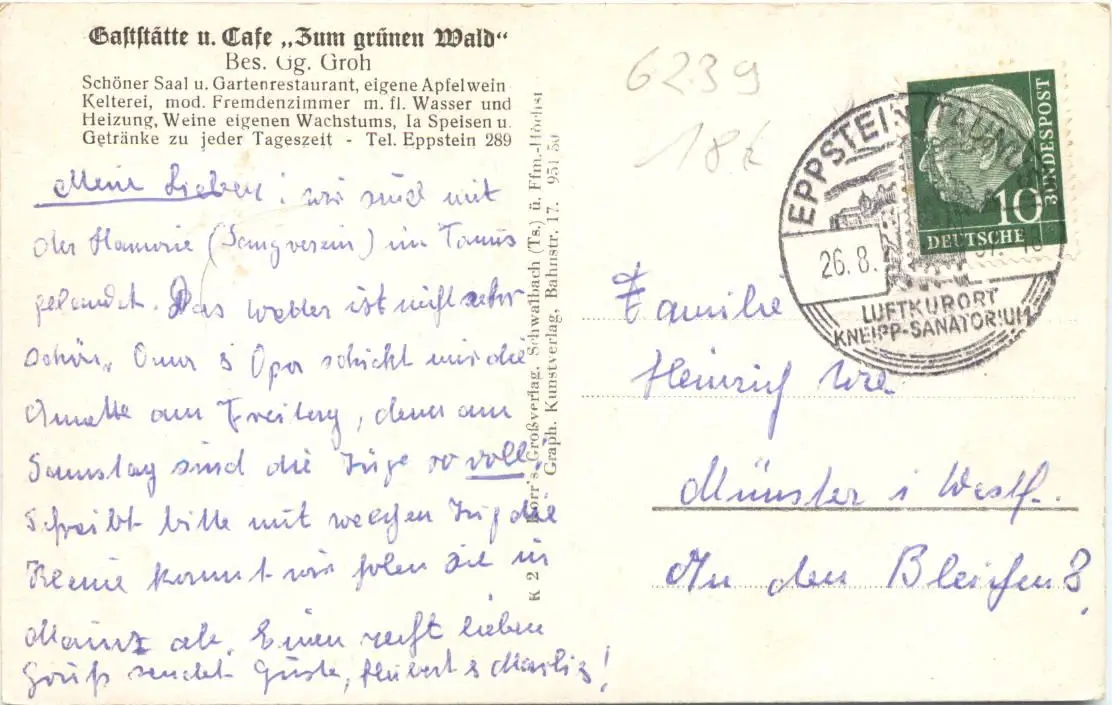 Gaststätte u. Cafe „Zum grünen Wald“
Bes. Gg. Groh
Schöner Saal u. Gartenrestaurant, eigene Apfelwein
Kelterei, mod. Fremdenzimmer m. fl. Wasser und
Heizung, Weine eigenen Wachstums, Ia Speisen u.
Getränke zu jeder Tageszeit - Tel. Eppstein 289
Meine Lieben! wir sind mit
der (Sangverein) im Taunus
gelandet. Das Wetter ist nicht sehr
schön. Oma & Opa schickt mir die
Anette am Freitag, denn am
Samstag sind die Züge so voll!
Schreibt bitte mit welchen Zug die
Kleine kommt wir holen sie in
Mainz ab. Einen recht lieben
Gruß sendet Guste, Hubert & Marliz!
K 2 Korr's Großverlag, Schwalbach (Ts.) ü. Ffm.-Höchst
Graph. Kunstverlag, Bahnstr. 17. 951 50
6239
18
EPPSTEIN (TAUNUS)
26.8.
LUFTKURORT
KNEIPP-SANATORIUM
10
DEUTSCHE
BUNDESPOST
Familie
Heinrich
Münster i Westf.
An den Bleichen 8,